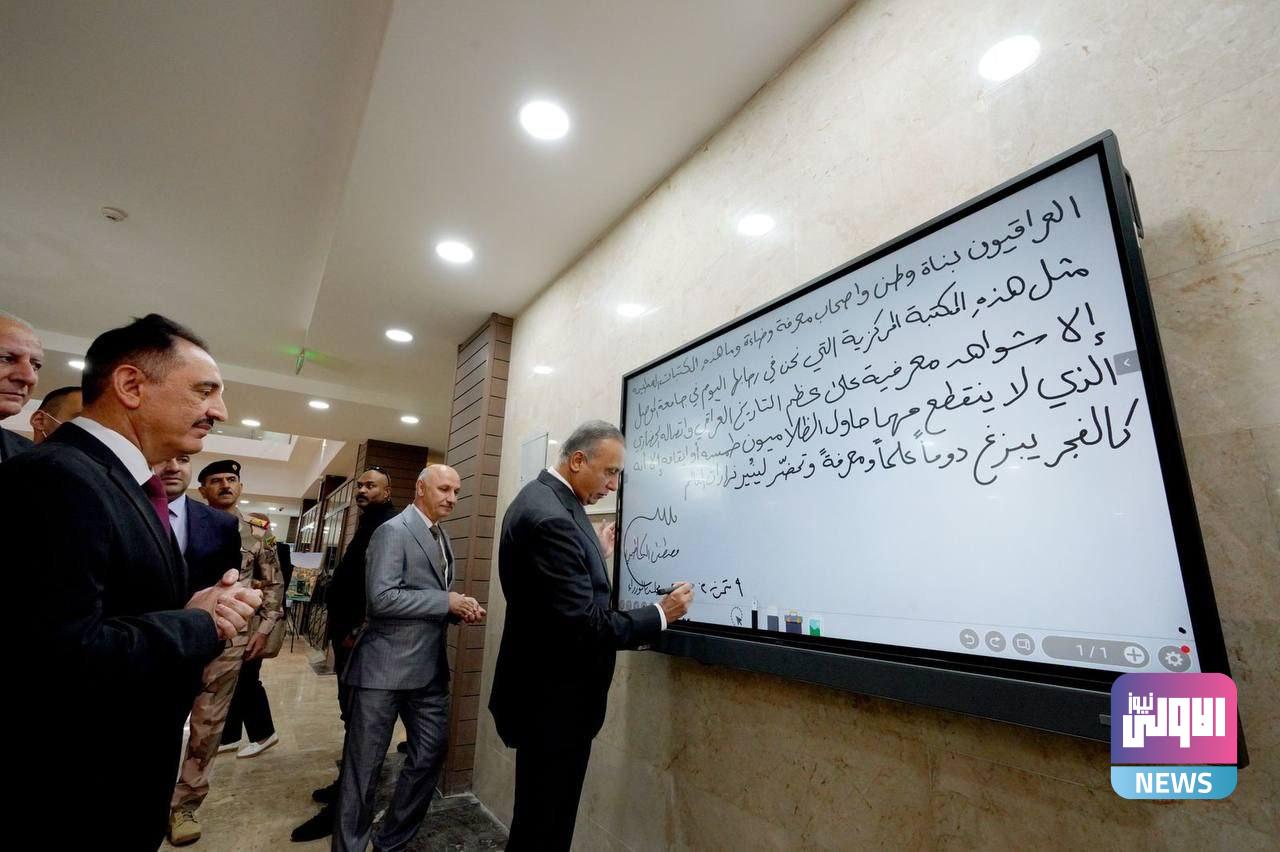 العراقيون بناة وطن واصحاب معرفة وضاءة وما هذه المكتبات العلمية
مثل هذهِ المكتبة المركزية التي نحن في رحابها اليوم في جامعة الموصل
إلا شواهد معرفية على عظم التاريخ العراقي واتصاله الحضاري
الذي لا ينقطع مهما حاول الظلاميون طمسه أو إيقافه إلا انه
كالفجر يبزغ دوماً علماً ومعرفةً وتحضّر لينير
مصطفى الكاظمي
٩ تموز
1/1
الاولى
نيوز
NEWS